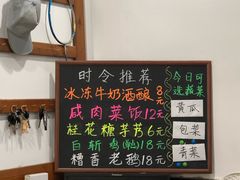 时令推荐
冰冻牛奶酒酿8元
咸肉菜饭12元
桂花糖芋艿6元
白斩鸡(例)18元
糟香老鹅18元
今日可选蔬菜
黄瓜
包菜
青菜